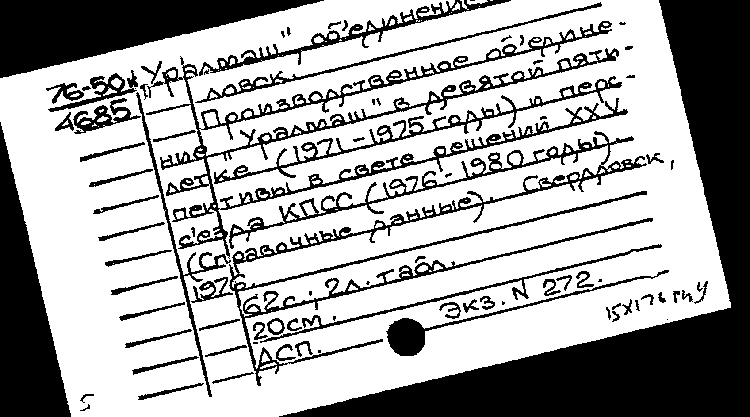 76-50к
4685
"Уралмаш", об'единение
ловск.
Производственное об'едине-
ние "Уралмаш" в девятой пяти-
летке (1971-1975 годы) и перс-
пективы в свете решений XXV
с'езда КПСС (1976-1980 годы).
(Справочные данные). Свердловск,
1976.
62с.; 2л. табл.
20см.
ДСП. Экз. N 272.
5